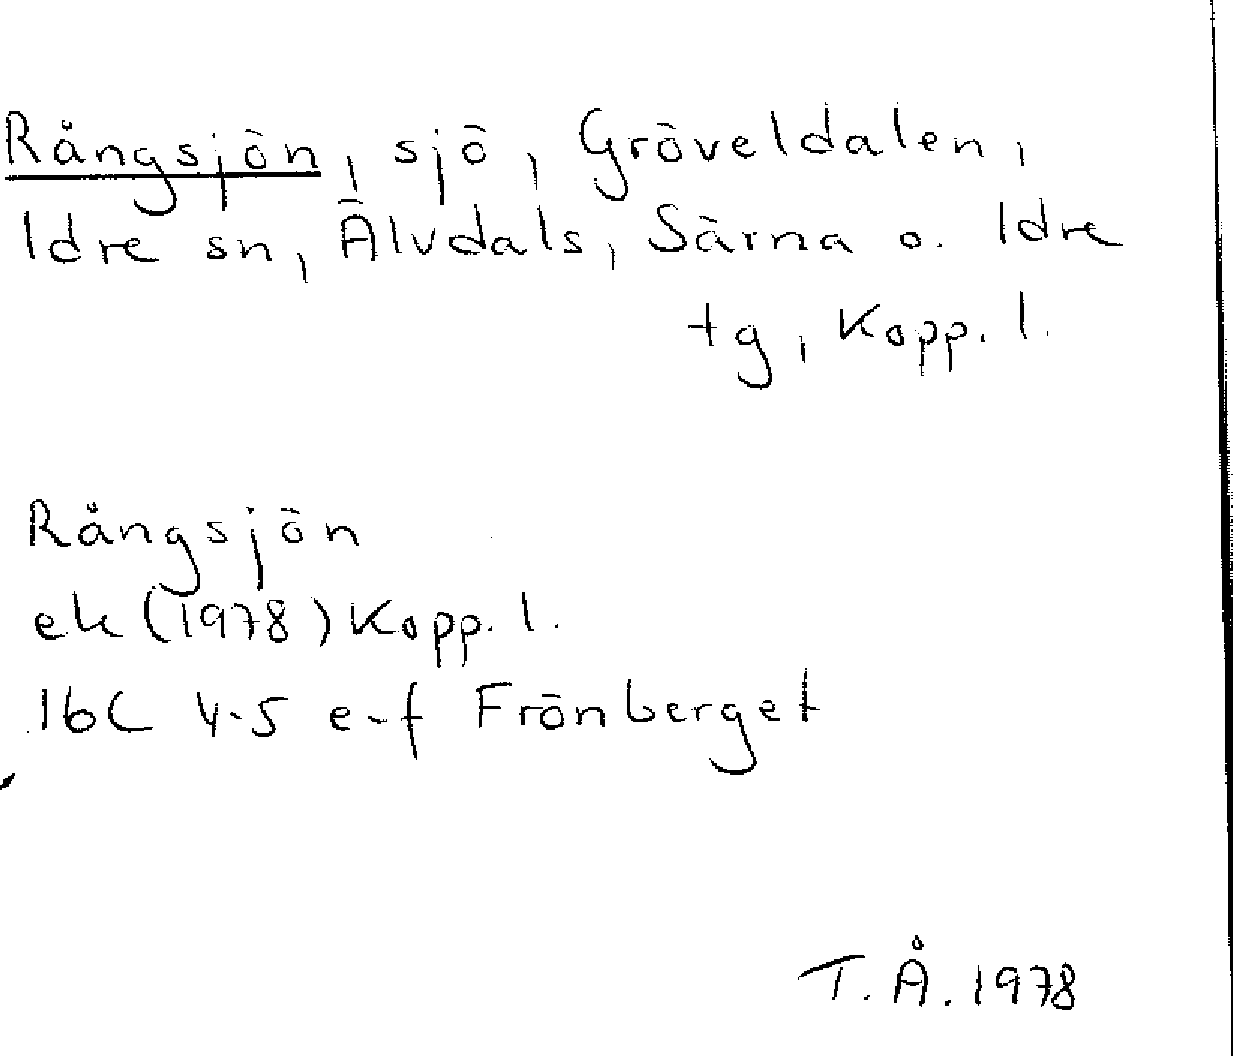 Rångsjön, sjö, Gröveldalen,
Idre sn, Älvdals, Särna o. Idre
tg, Kopp. l.
Rångsjön
ek (1978) Kopp. l.
16C 4-5 e-f Frönberget
T. Å. 1978